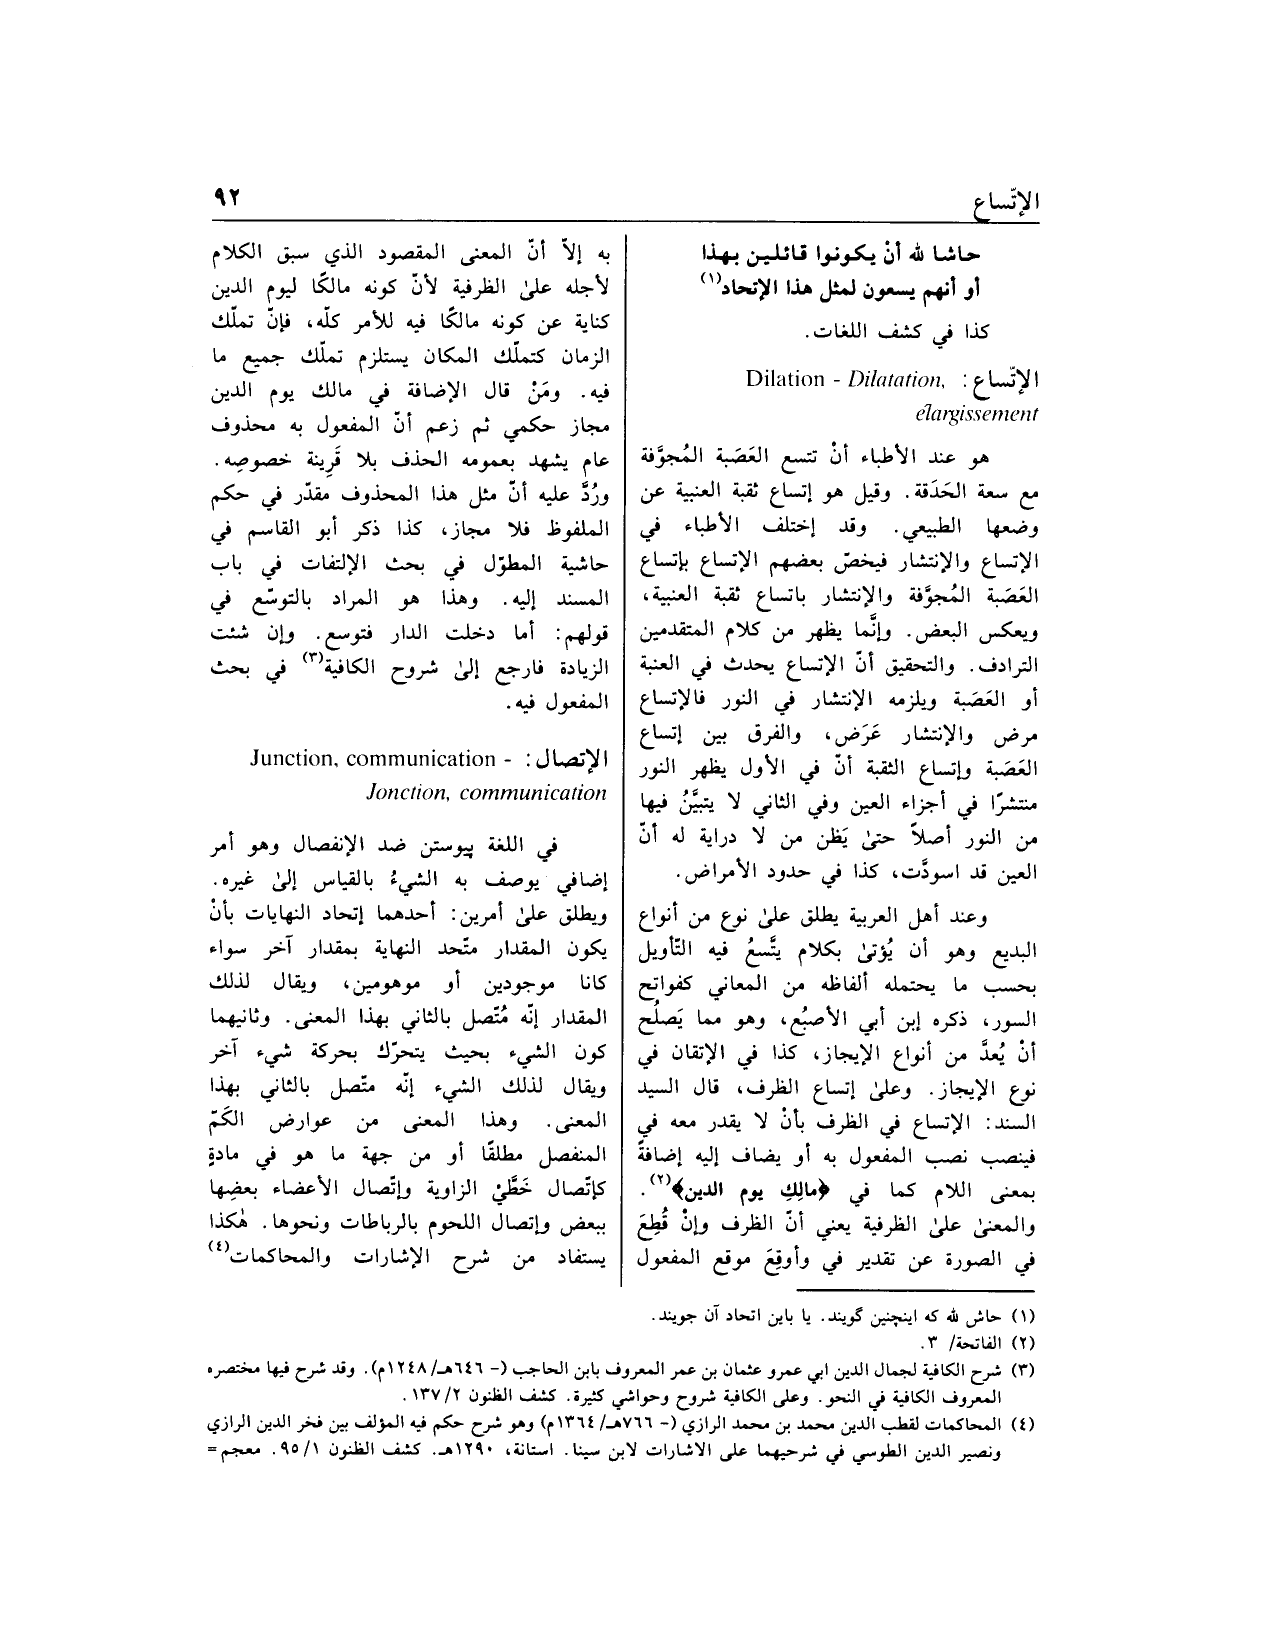 الإتّساع
٩٢
حاشا لله أنْ يكونوا قائلين بهذا
أو أنهم يسعون لمثل هذا الإتحاد(١)
كذا في كشف اللغات.
الإتّساع: Dilation - Dilatation,
élargissement
هو عند الأطباء أنْ تتسع العَصَبة المُجوَّفة
مع سعة الحَدَقة. وقيل هو إتساع ثقبة العنبية عن
وضعها الطبيعي. وقد إختلف الأطباء في
الإتساع والإنتشار فيخصّ بعضهم الإتساع بإتساع
العَصَبة المُجوَّفة والإنتشار باتساع ثقبة العنبية،
ويعكس البعض. وإنَّما يظهر من كلام المتقدمين
الترادف. والتحقيق أنّ الإتساع يحدث في العنبة
أو العَصَبة ويلزمه الإنتشار في النور فالإتساع
مرض والإنتشار عَرَض، والفرق بين إتساع
العَصَبة وإتساع الثقبة أنّ في الأول يظهر النور
منتشرًا في أجزاء العين وفي الثاني لا يتبيَّنُ فيها
من النور أصلاً حتىٰ يَظن من لا دراية له أنّ
العين قد اسودَّت، كذا في حدود الأمراض.
وعند أهل العربية يطلق علىٰ نوع من أنواع
البديع وهو أن يُؤتىٰ بكلام يتَّسعُ فيه التّأويل
بحسب ما يحتمله ألفاظه من المعاني كفواتح
السور، ذكره إبن أبي الأصبُع، وهو مما يَصلُح
أنْ يُعدَّ من أنواع الإيجاز، كذا في الإتقان في
نوع الإيجاز. وعلىٰ إتساع الظرف، قال السيد
السند: الإتساع في الظرف بأنْ لا يقدر معه في
فينصب نصب المفعول به أو يضاف إليه إضافةً
بمعنى اللام كما في ﴿مالِكِ يوم الدين﴾(٢).
والمعنىٰ علىٰ الظرفية يعني أنّ الظرف وإنْ قُطِعَ
في الصورة عن تقدير في وأوقِعَ موقع المفعول
به إلاّ أنّ المعنى المقصود الذي سبق الكلام
لأجله علىٰ الظرفية لأنّ كونه مالكًا ليوم الدين
كناية عن كونه مالكًا فيه للأمر كلّه، فإنّ تملّك
الزمان كتملّك المكان يستلزم تملّك جميع ما
فيه. ومَنْ قال الإضافة في مالك يوم الدين
مجاز حكمي ثم زعم أنّ المفعول به محذوف
عام يشهد بعمومه الحذف بلا قَرِينة خصوصِه.
ورُدَّ عليه أنّ مثل هذا المحذوف مقدّر في حكم
الملفوظ فلا مجاز، كذا ذكر أبو القاسم في
حاشية المطوّل في بحث الإلتفات في باب
المسند إليه. وهذا هو المراد بالتوسّع في
قولهم: أما دخلت الدار فتوسع. وإن شئت
الزيادة فارجع إلىٰ شروح الكافية(٣) في بحث
المفعول فيه.
الإتصال: Junction, communication -
Jonction, communication
في اللغة پيوستن ضد الإنفصال وهو أمر
إضافي يوصف به الشيءُ بالقياس إلىٰ غيره.
ويطلق علىٰ أمرين: أحدهما إتحاد النهايات بأنْ
يكون المقدار متّحد النهاية بمقدار آخر سواء
كانا موجودين أو موهومين، ويقال لذلك
المقدار إنّه مُتّصل بالثاني بهذا المعنى. وثانيهما
كون الشيء بحيث يتحرّك بحركة شيء آخر
ويقال لذلك الشيء إنّه متّصل بالثاني بهذا
المعنى. وهذا المعنى من عوارض الكَمّ
المنفصل مطلقًا أو من جهة ما هو في مادةٍ
كإتّصال خَطَّيْ الزاوية وإتّصال الأعضاء بعضِها
ببعض وإتصال اللحوم بالرباطات ونحوها. هٰكذا
يستفاد من شرح الإشارات والمحاكمات(٤)
(١) حاش لله كه اينچنين گويند. يا باين اتحاد آن جويند.
(٢) الفاتحة/ ٣.
(٣) شرح الكافية لجمال الدين ابي عمرو عثمان بن عمر المعروف بابن الحاجب (- ٦٤٦هـ/ ١٢٤٨م). وقد شرح فيها مختصره
المعروف الكافية في النحو. وعلى الكافية شروح وحواشي كثيرة. كشف الظنون ١٣٧/٢.
(٤) المحاكمات لقطب الدين محمد بن محمد الرازي (- ٧٦٦هـ/ ١٣٦٤م) وهو شرح حكم فيه المؤلف بين فخر الدين الرازي
ونصير الدين الطوسي في شرحيهما على الاشارات لابن سينا. استانة، ١٢٩٠هـ. كشف الظنون ٩٥/١. معجم =